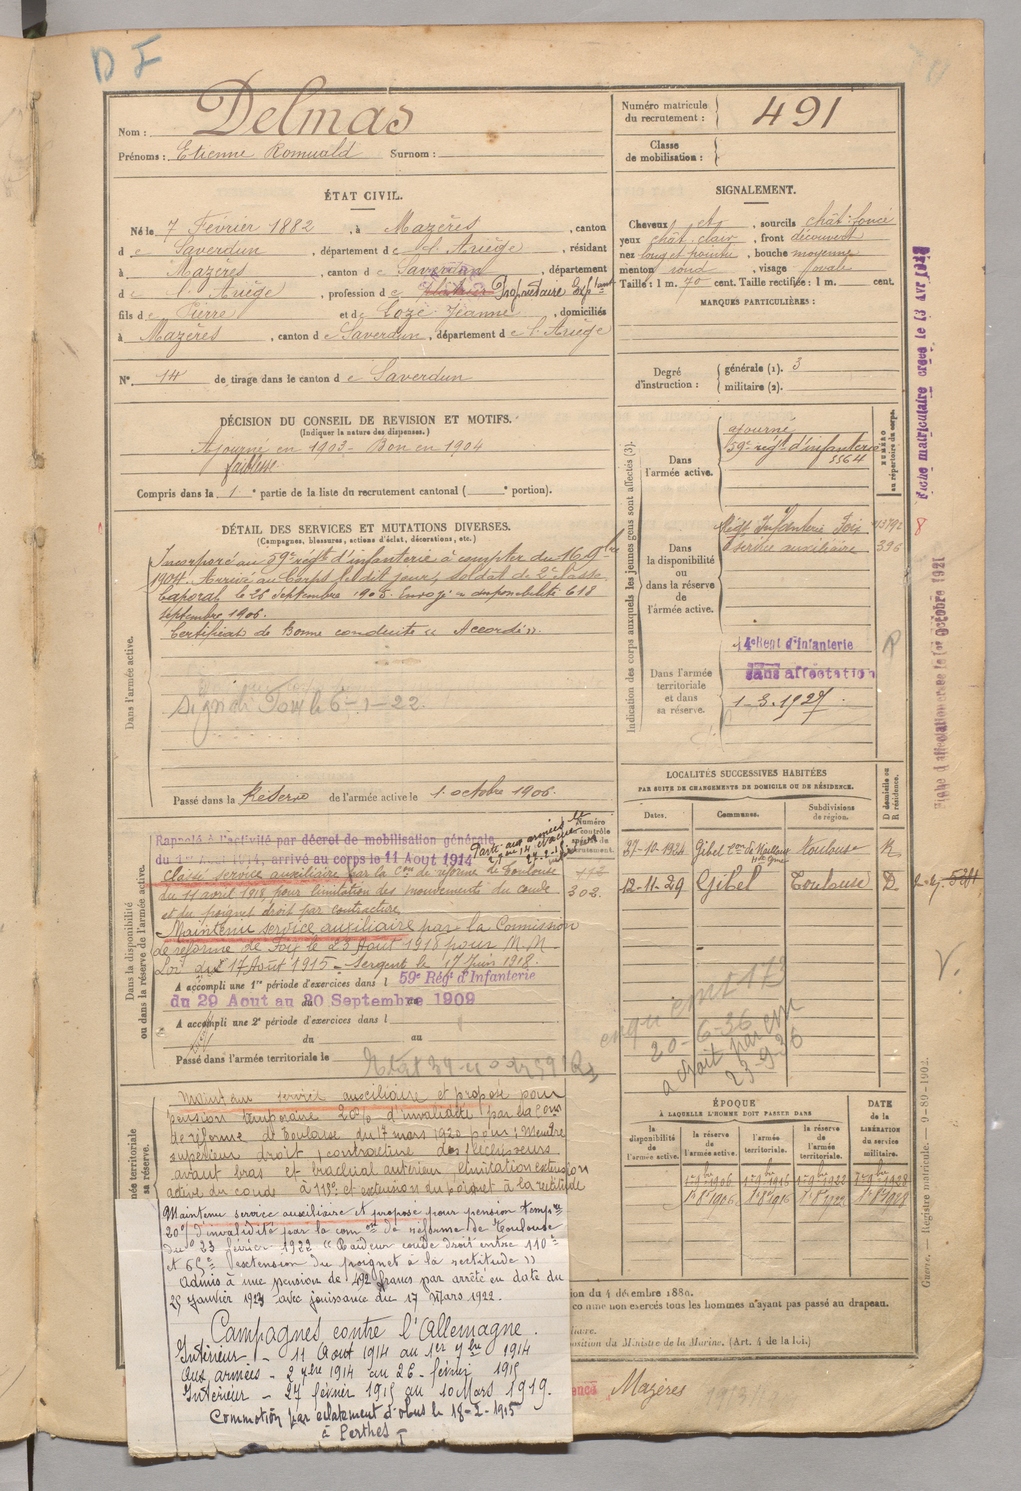 D F
Nom : Delmas
Prénoms : Etienne Romuald Surnom :
Numéro matricule du recrutement : 491
Classe de mobilisation :
ÉTAT CIVIL.
Né le 7 Février 1882, à Mazères, canton
de Saverdun, département de l'Ariège, résidant
à Mazères, canton de Saverdun, département
de l'Ariège, profession de Propriétaire Exp
fils de Pierre et de Eozé Jeanne, domiciliés
à Mazères, canton de Saverdun, département de l'Ariège
N° 14 de tirage dans le canton de Saverdun
SIGNALEMENT.
Cheveux et, sourcils chât: foncé
yeux chât. clair, front découvert
nez long et pointu, bouche moyenne
menton rond, visage ovale
Taille : 1 m. 70 cent. Taille rectifiée : 1 m. cent.
MARQUES PARTICULIÈRES :
Degré d'instruction : générale (1). 3
militaire (2).
DÉCISION DU CONSEIL DE REVISION ET MOTIFS.
(Indiquer la nature des dispenses.)
Ajourné en 1903 - Bon en 1904
faiblesse
Compris dans la 1e partie de la liste du recrutement cantonal ( e portion).
DÉTAIL DES SERVICES ET MUTATIONS DIVERSES.
(Campagnes, blessures, actions d'éclat, décorations, etc.)
Dans l'armée active.
Incorporé au 59e régt d'infanterie à compter du 16 9bre
1904. Arrivé au Corps le dit jour, soldat de 2e classe
Caporal le 26 Septembre 1905. Envoyé en disponibilité le 18
septembre 1906.
Certificat de Bonne conduite « Accordé ».
6-1-22
Passé dans la Réserve de l'armée active le 1. octobre 1906.
Indication des corps auxquels les jeunes gens sont affectés (3).
NUMÉRO au répertoire du corps.
Dans l'armée active.
ajourné
59e régt d'infanterie
5564
Dans la disponibilité ou dans la réserve de l'armée active.
Régt Infanterie Foix
service auxiliaire 396
Dans l'armée territoriale et dans sa réserve.
14e Regt d'Infanterie
sans affectation
1-3-1927
Fiche matriculaire créée le 13 avr
8
Fiche d'affectation créée le 1er Octobre 1921
LOCALITÉS SUCCESSIVES HABITÉES
PAR SUITE DE CHANGEMENTS DE DOMICILE OU DE RÉSIDENCE.
Dates. Communes. Subdivisions de région. D domicile ou R résidence.
27-10-1924 Gibel Con de Nailloux Hte Gne Toulouse R
12-11-29 Gibel Toulouse D
enqu empt 173
20-6-36
a droit par
23-9-36
Dans la disponibilité ou dans la réserve de l'armée active.
Rappelé à l'activité par décret de mobilisation générale
du 1er Août 1914, arrivé au corps le 11 Aout 1914
Parti aux armées le
Numéro contrôle spécial du recrutement.
302
Classé service auxiliaire par la Con de réforme de Toulouse
du 11 avril 1918 pour limitation des mouvements du coude
et du poignet droit par contracture
Maintenu service auxiliaire par la Commission
de réforme de Foix le 23 Août 1918 pour M.M
Loi du 17 Août 1915 - Sergent le 17 Juin 1918.
A accompli une 1re période d'exercices dans l 59e Régt d'Infanterie
du 29 Aout au 20 Septembre 1909
A accompli une 2e période d'exercices dans l
du au
Passé dans l'armée territoriale le
Maintenu service auxiliaire et proposé pour
pension temporaire 20% d'invalidité par la Con
de réforme de Toulouse du 17 mars 1920 pour : Membre
supérieur droit, contracture des fléchisseurs
avant bras et brachial antérieur, limitation extension
active du coude à 115° et extension du poignet à la rectitude
Maintenu service auxiliaire et proposé pour pension tempre
20% d'invalidité par la comon de réforme de Toulouse
du 23 février 1922 " Raideur coude droit entre 110°
et 65° extension du poignet à la rectitude "
Admis à une pension de 492 francs par arrêté en date du
25 Janvier 1923 avec jouissance du 17 Mars 1922.
Campagnes contre l'Allemagne.
Intérieur - 11 Aout 1914 au 1er 7bre 1914
Aux armées - 2 7bre 1914 au 26 février 1915
Intérieur - 27 février 1915 au 10 Mars 1919.
Commotion par éclatement d'obus le 18-2-1915
à Perthes
ÉPOQUE
À LAQUELLE L'HOMME DOIT PASSER DANS
DATE de la LIBÉRATION du service militaire.
la disponibilité de l'armée active. la réserve de l'armée active. l'armée territoriale. la réserve de l'armée territoriale.
1er 8bre 1906 1er 8bre 1916 1er 8bre 1922 1er 8bre 1928
ion du 4 décembre 1889.
comme non exercés tous les hommes n'ayant pas passé au drapeau.
position du Ministre de la Marine. (Art. 4 de la loi.)
Mazères
Guerre. — Registre matricule. — 9-89-1902.